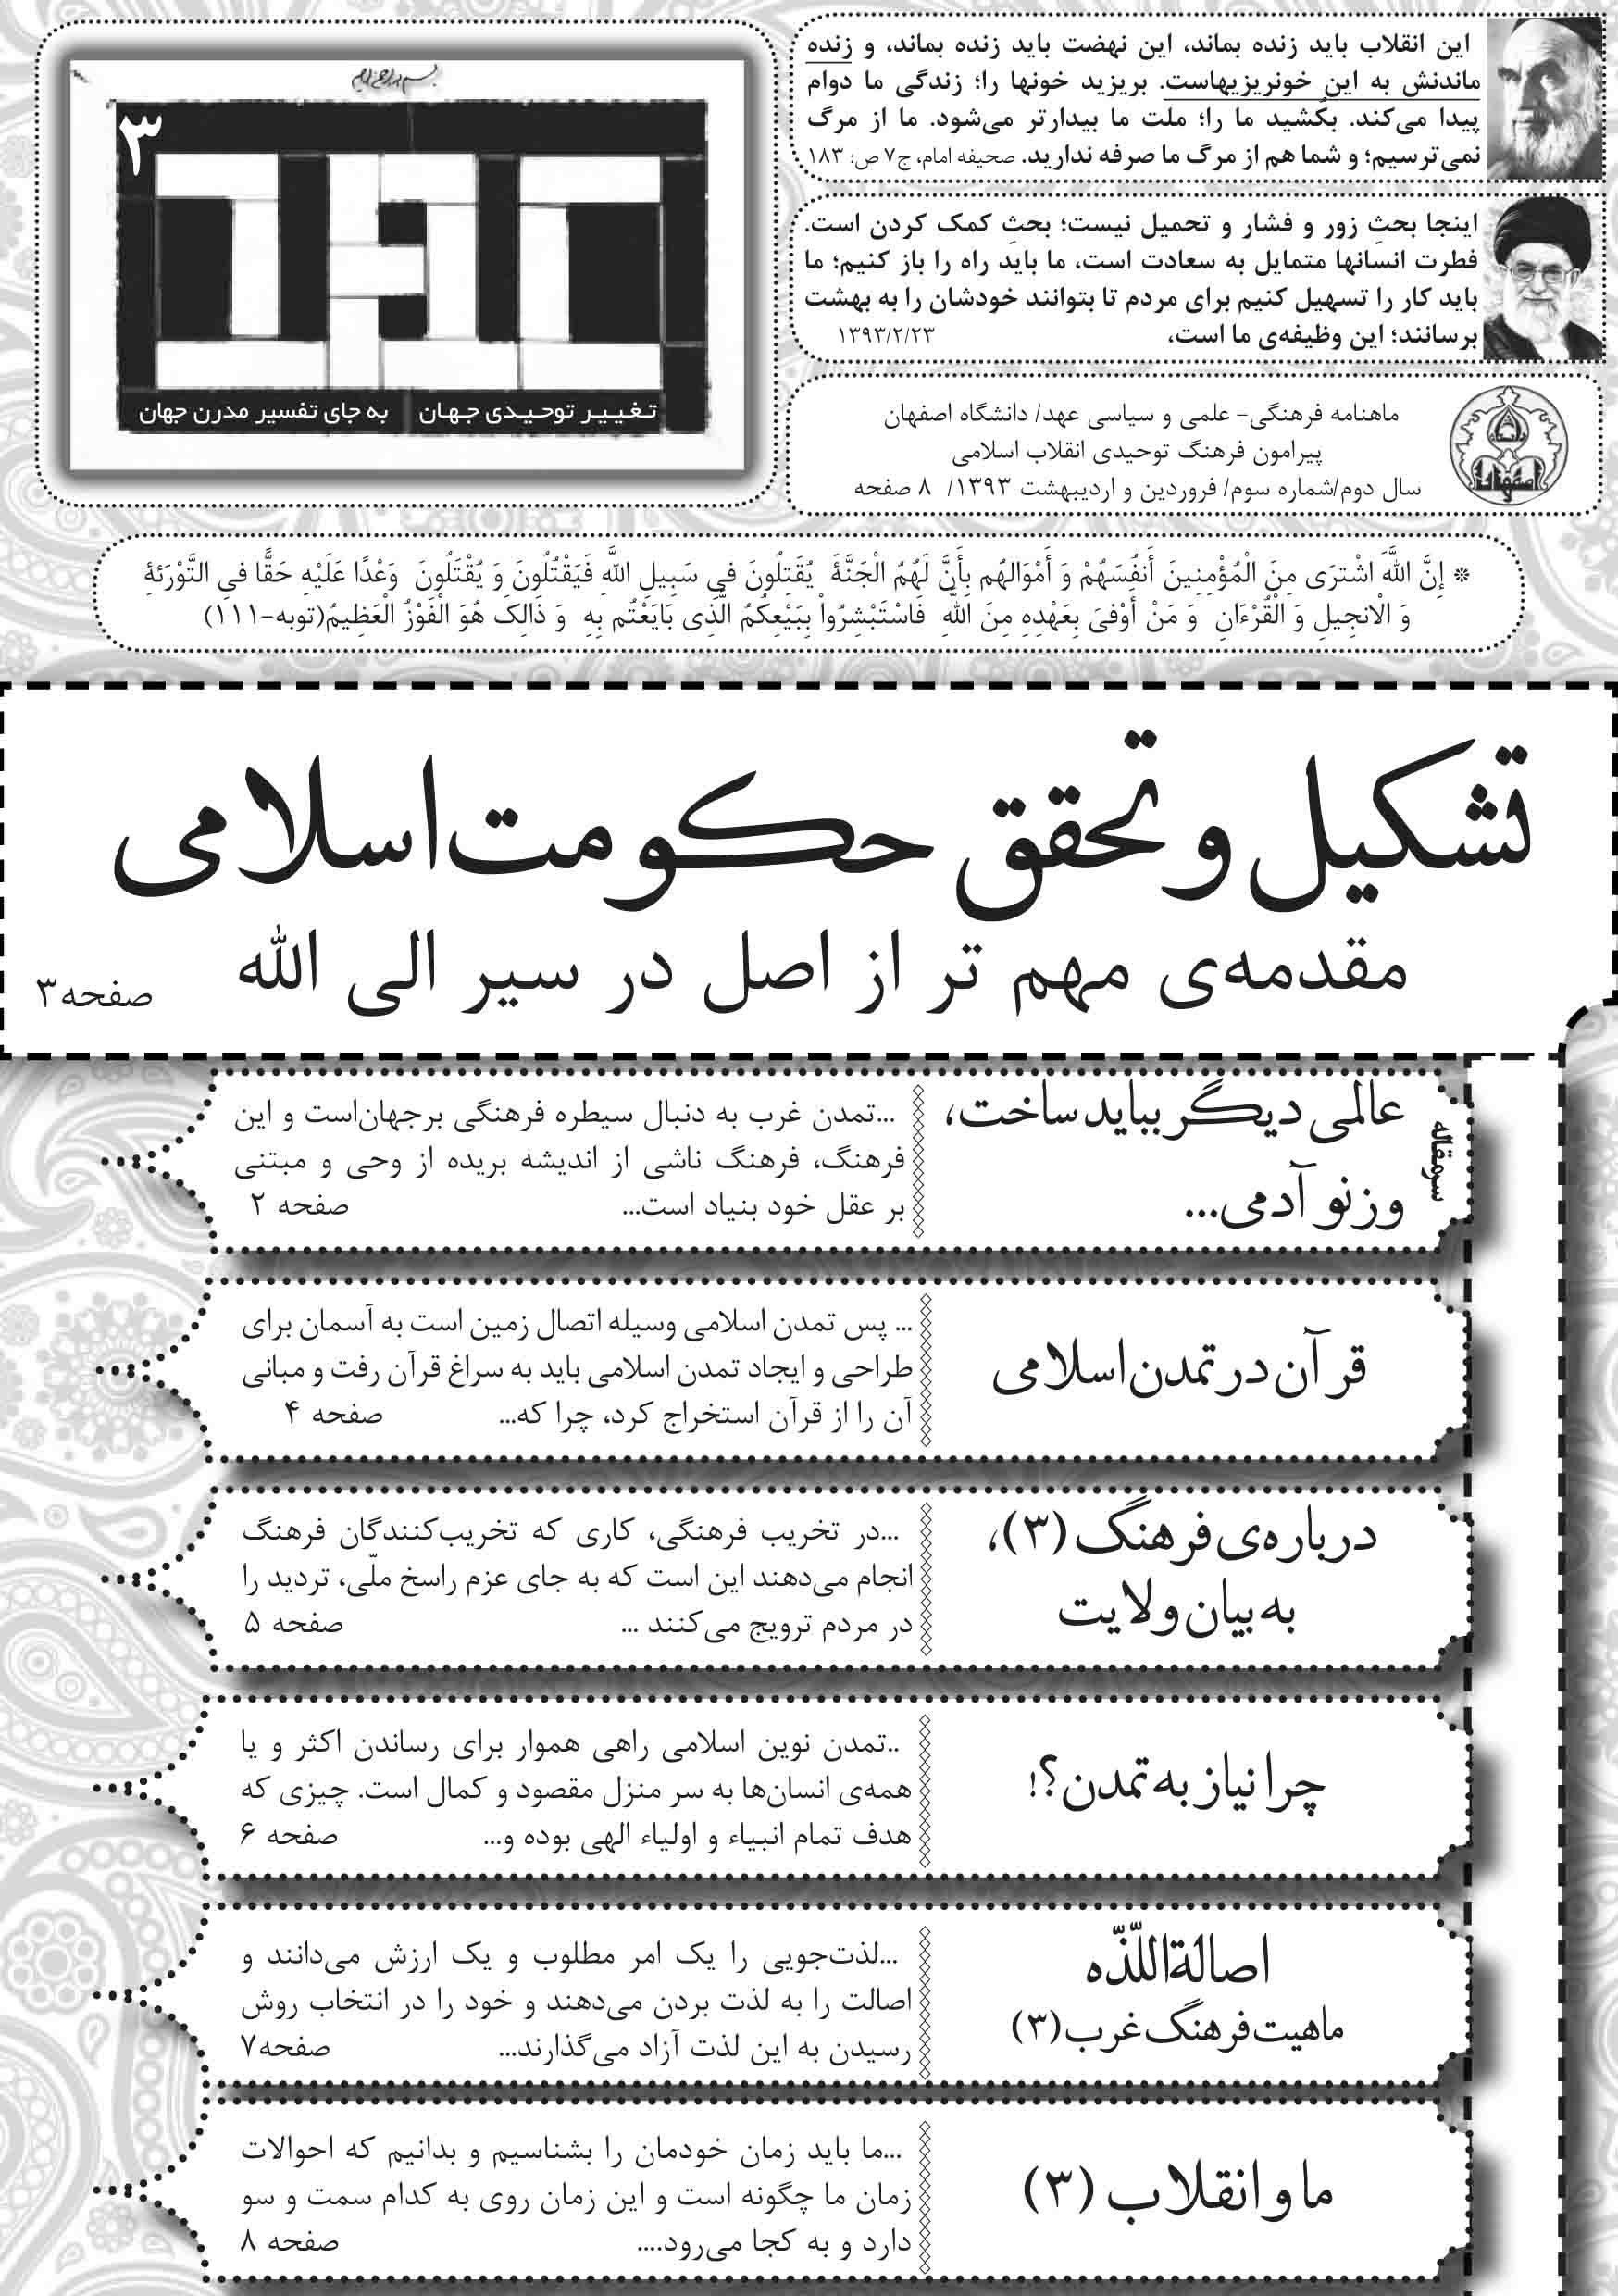 این انقلاب باید زنده بماند، این نهضت باید زنده بماند، و زنده
ماندنش به این خونریزیهاست. بریزید خونها را؛ زندگی ما دوام
پیدا می‌کند. بکُشید ما را؛ ملت ما بیدارتر می‌شود. ما از مرگ
نمی‌ترسیم؛ و شما هم از مرگ ما صرفه ندارید. صحیفه امام، ج۷ ص: ۱۸۳
اینجا بحثِ زور و فشار و تحمیل نیست؛ بحثِ کمک کردن است.
فطرت انسانها متمایل به سعادت است، ما باید راه را باز کنیم؛ ما
باید کار را تسهیل کنیم برای مردم تا بتوانند خودشان را به بهشت
برسانند؛ این وظیفه‌ی ما است، ۱۳۹۳/۲/۲۳
ماهنامه فرهنگی- علمی و سیاسی عهد/ دانشگاه اصفهان
پیرامون فرهنگ توحیدی انقلاب اسلامی
سال دوم/شماره سوم/ فروردین و اردیبهشت ۱۳۹۳/ ۸ صفحه
دانشگاه
اصفهان
بسم الله الرحمن الرحیم
۳
عهد
تغییر توحیدی جهان به جای تفسیر مدرن جهان
* إِنَّ اللَّهَ اشْترَى مِنَ الْمُؤْمِنِينَ أَنفُسَهُمْ وَ أَمْوَالهُم بِأَنَّ لَهُمُ الْجَنَّةَ يُقَتِلُونَ فىِ سَبِيلِ اللَّهِ فَيَقْتُلُونَ وَ يُقْتَلُونَ وَعْدًا عَلَيْهِ حَقًّا فىِ التَّوْرَئةِ
وَ الْانجِيلِ وَ الْقُرْءَانِ وَ مَنْ أَوْفىَ بِعَهْدِهِ مِنَ اللَّهِ فَاسْتَبْشِرُواْ بِبَيْعِكُمُ الَّذِى بَايَعْتُم بِهِ وَ ذَالِکَ هُوَ الْفَوْزُ الْعَظِيمُ(توبه-۱۱۱)
تشکیل و تحقق حکومت اسلامی
مقدمه‌ی مهم تر از اصل در سیر الی الله
صفحه۳
سرمقاله
عالمی دیگر بباید ساخت،
وز نو آدمی...
...تمدن غرب به دنبال سیطره فرهنگی برجهان‌است و این
فرهنگ، فرهنگ ناشی از اندیشه بریده از وحی و مبتنی
بر عقل خود بنیاد است... صفحه ۲
قرآن در تمدن اسلامی
... پس تمدن اسلامی وسیله اتصال زمین است به آسمان برای
طراحی و ایجاد تمدن اسلامی باید به سراغ قرآن رفت و مبانی
آن را از قرآن استخراج کرد، چرا که... صفحه ۴
درباره‌ی فرهنگ (۳)،
به بیان ولایت
...در تخریب فرهنگی، کاری که تخریب‌کنندگان فرهنگ
انجام می‌دهند این است که به جای عزم راسخ ملّی، تردید را
در مردم ترویج می‌کنند ... صفحه ۵
چرا نیاز به تمدن؟!
..تمدن نوین اسلامی راهی هموار برای رساندن اکثر و یا
همه‌ی انسان‌ها به سر منزل مقصود و کمال است. چیزی که
هدف تمام انبیاء و اولیاء الهی بوده و... صفحه ۶
اصالةاللّذّه
ماهیت فرهنگ غرب (۳)
...لذت‌جویی را یک امر مطلوب و یک ارزش می‌دانند و
اصالت را به لذت بردن می‌دهند و خود را در انتخاب روش
رسیدن به این لذت آزاد می‌گذارند... صفحه۷
ما و انقلاب (۳)
...ما باید زمان خودمان را بشناسیم و بدانیم که احوالات
زمان ما چگونه است و این زمان روی به کدام سمت و سو
دارد و به کجا می‌رود.... صفحه ۸